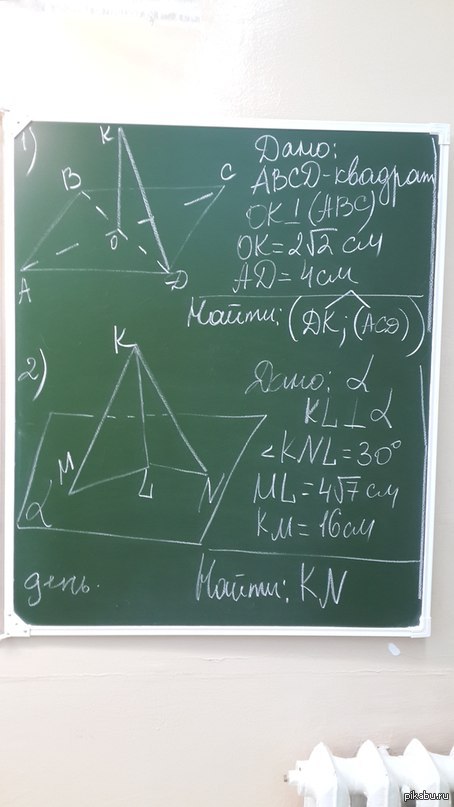 1)
K
B
C
O
A
D
Дано:
ABCD-квадрат
OK⊥(ABC)
OK=2√2 см
AD=4см
Найти: (DK; (ACD))
2)
K
M
L
N
α
Дано: α
KL⊥α
<KNL=30°
ML=4√7 см
KM=16см
Найти: KN
день.
pikabu.ru